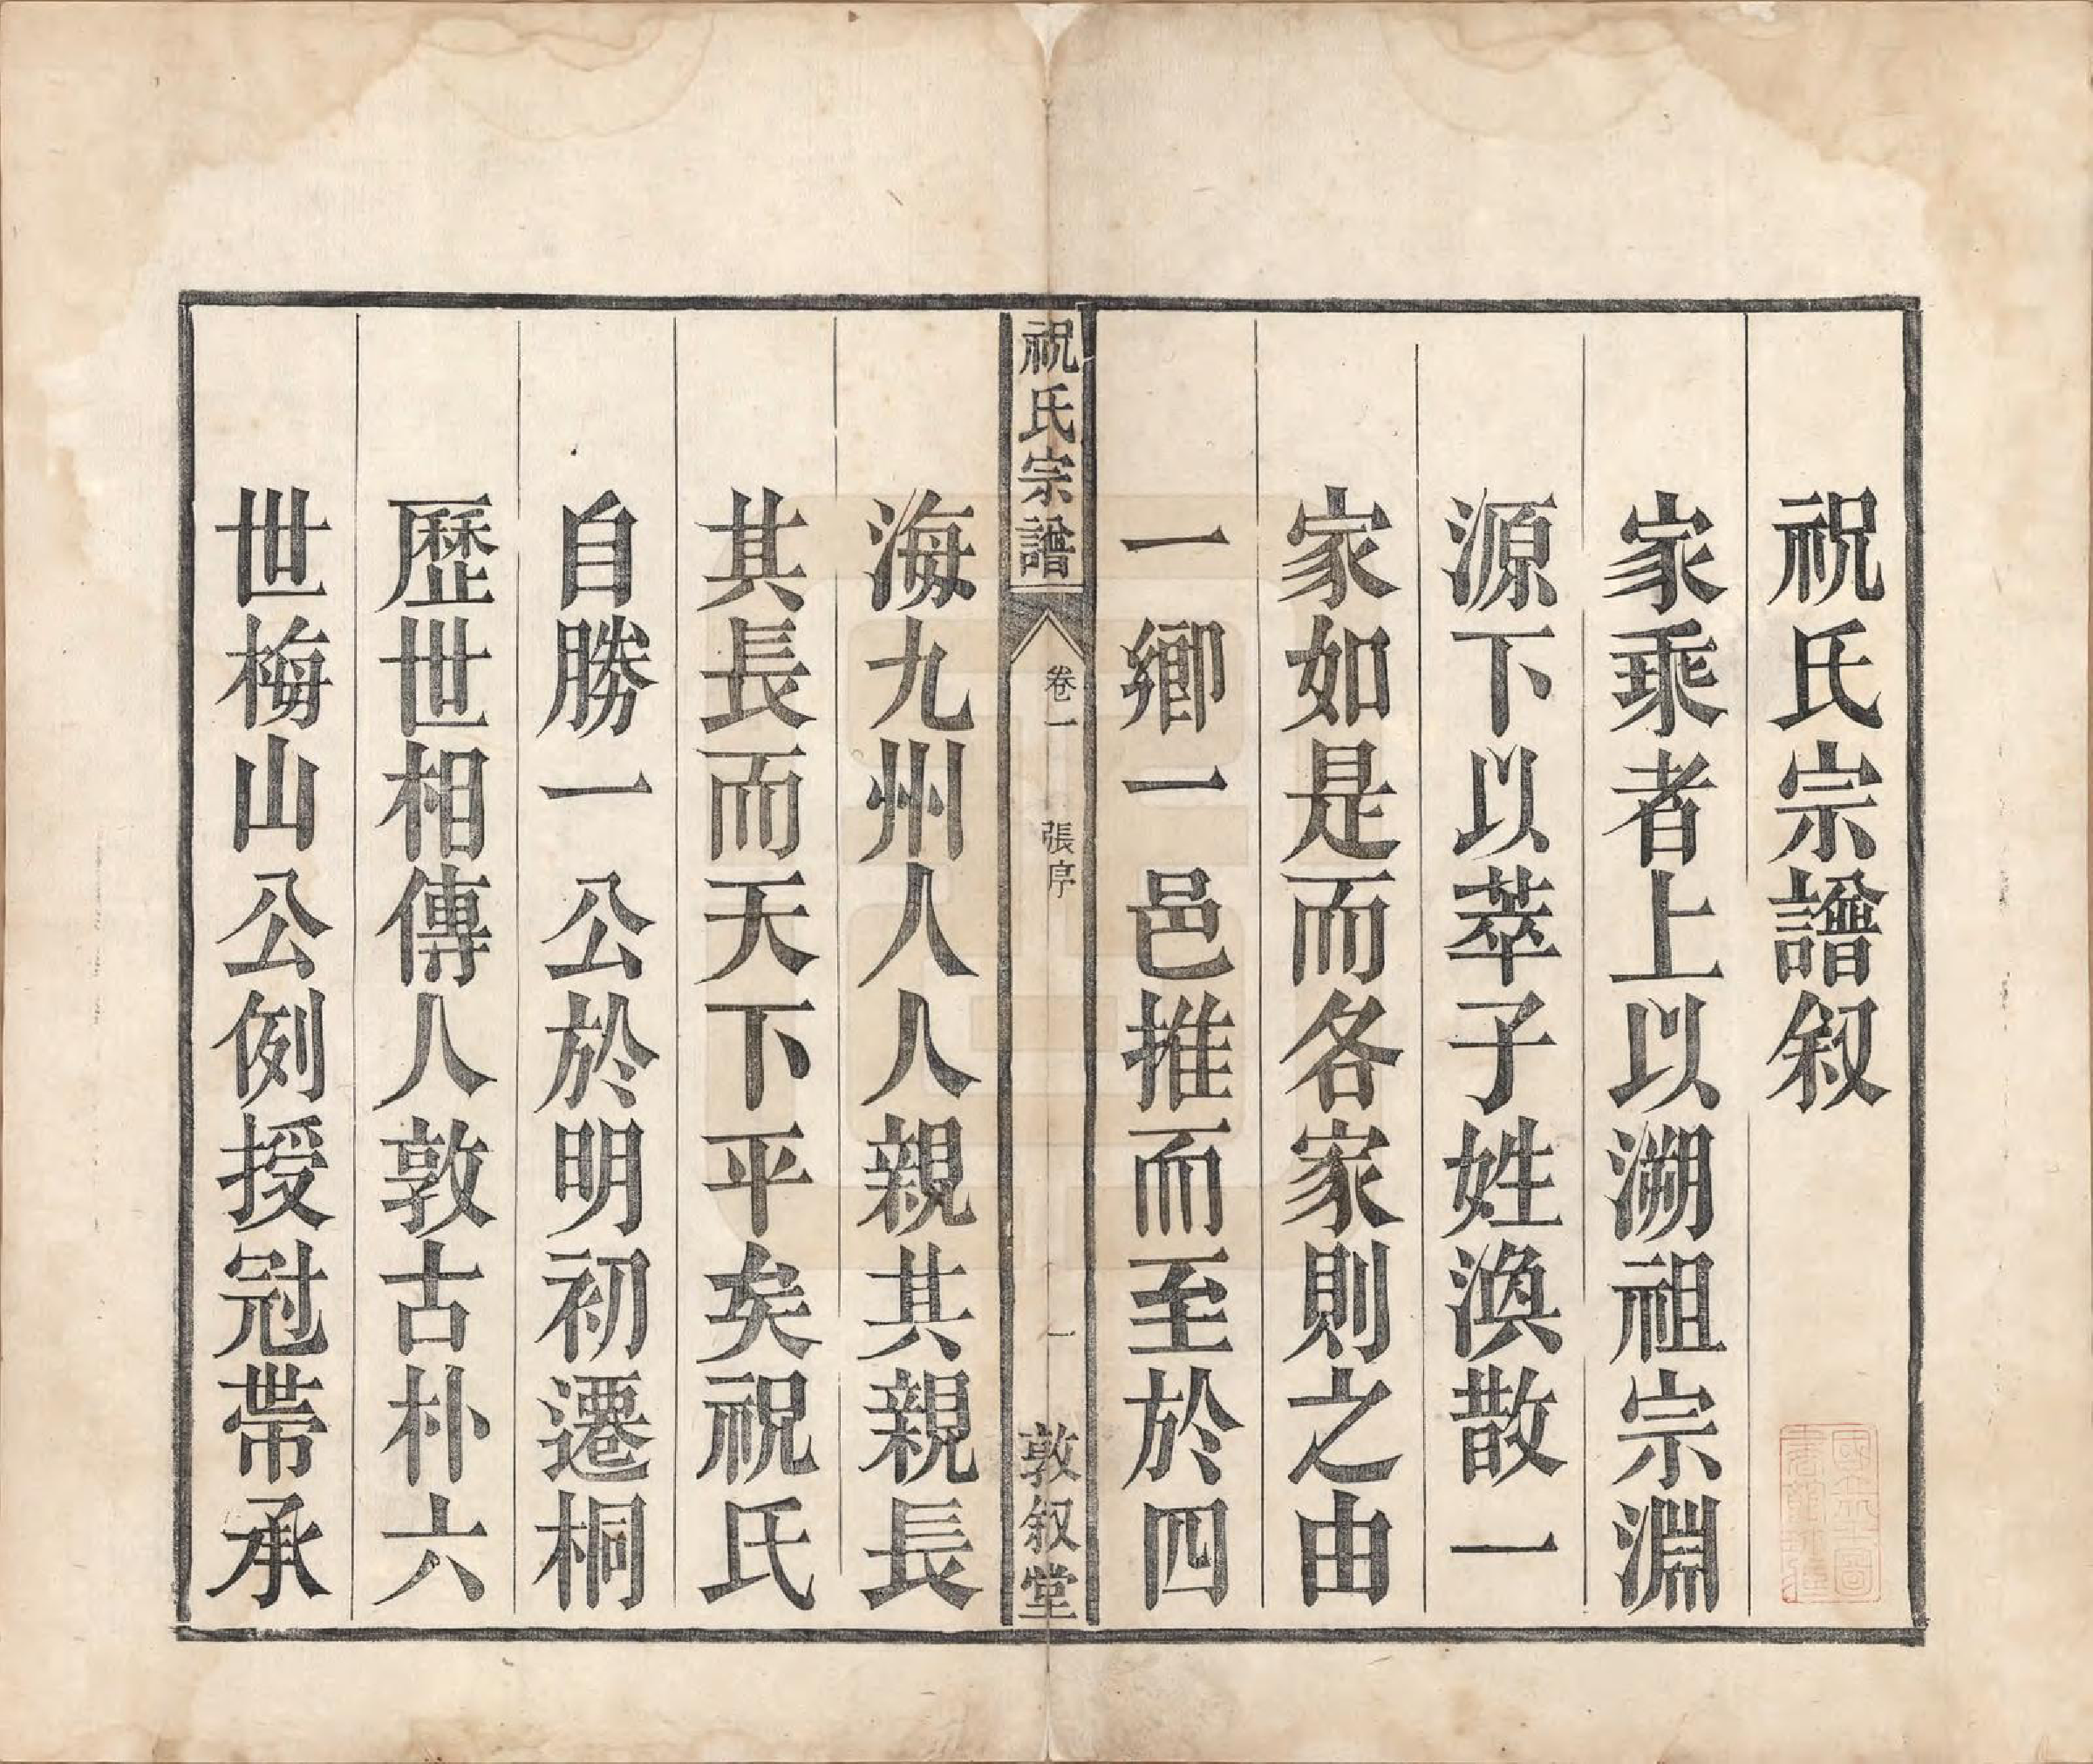 祝氏宗譜叙
家乘者上以溯祖宗淵
源下以萃子姓渙散一
家如是而各家則之由
一鄉一邑推而至於四
祝氏宗譜
卷一
張序
一
敦叙堂
海九州人人親其親長
其長而天下平矣祝氏
自勝一公於明初遷桐
歷世相傳人敦古朴六
世梅山公例授冠帶承